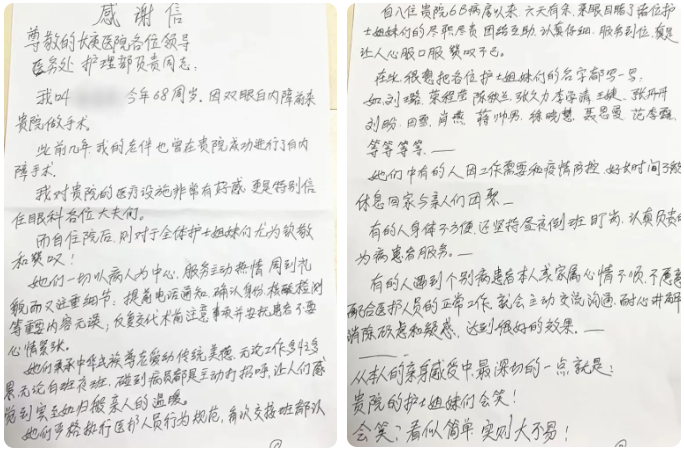 感谢信
尊敬的长庚医院各位领导
医务处 护理部负责同志:
我叫 今年68周岁,因双眼白内障前来
贵院做手术。
此前几年,我的老伴也曾在贵院成功进行了白内
障手术。
我对贵院的医疗设施非常有好感,更是特别信
任眼科各位大夫们。
而自住院后,则对于全体护士姐妹们尤为致敬
和赞叹!
她们一切以病人为中心,服务主动热情 周到礼
貌而又注重细节:提前电话通知、确认身份、核酸检测
等重要内容无误;反复交代术前注意事项并安抚患者不要
心情紧张。
她们秉承中华民族尊老爱幼传统美德,无论工作多忙多
累无论白班夜班,碰到病员都是主动打招呼,让人们感
觉到宾至如归般亲人的温暖。
她们严格执行医护人员行为规范,每次交接班都认
自入住贵院6B病房以来,六天有余,亲眼目睹了诸位护
士姐妹们的尽职尽责 团结互助、认真仔细、服务到位,真是
让人心服口服 赞叹不已。
在此,很想把各位护士姐妹们的名字都写一写:
如,刘璐、荣程莹、陈 、张久力、李学清、王婕、张丹丹
刘盼、田雪、肖燕、蒋帅男、徐晓慧、聂思曼、范李
等等等等。——
她们中有的人因工作需要和疫情防控,好长时间不能
休息回家与亲人们团聚。—
有的人身体不方便,还坚持昼夜倒班盯岗,认真负责的
为病患者服务。——
有的人遇到个别病患者本人或家属心情不顺,不愿意
配合医护人员的正常工作,就会主动交流沟通,耐心讲解
消除顾虑和疑惑,达到很好的效果。——
从本人的亲身感受中,最深切的一点就是:
贵院的护士姐妹们会笑!
会笑:看似简单,实则大不易!